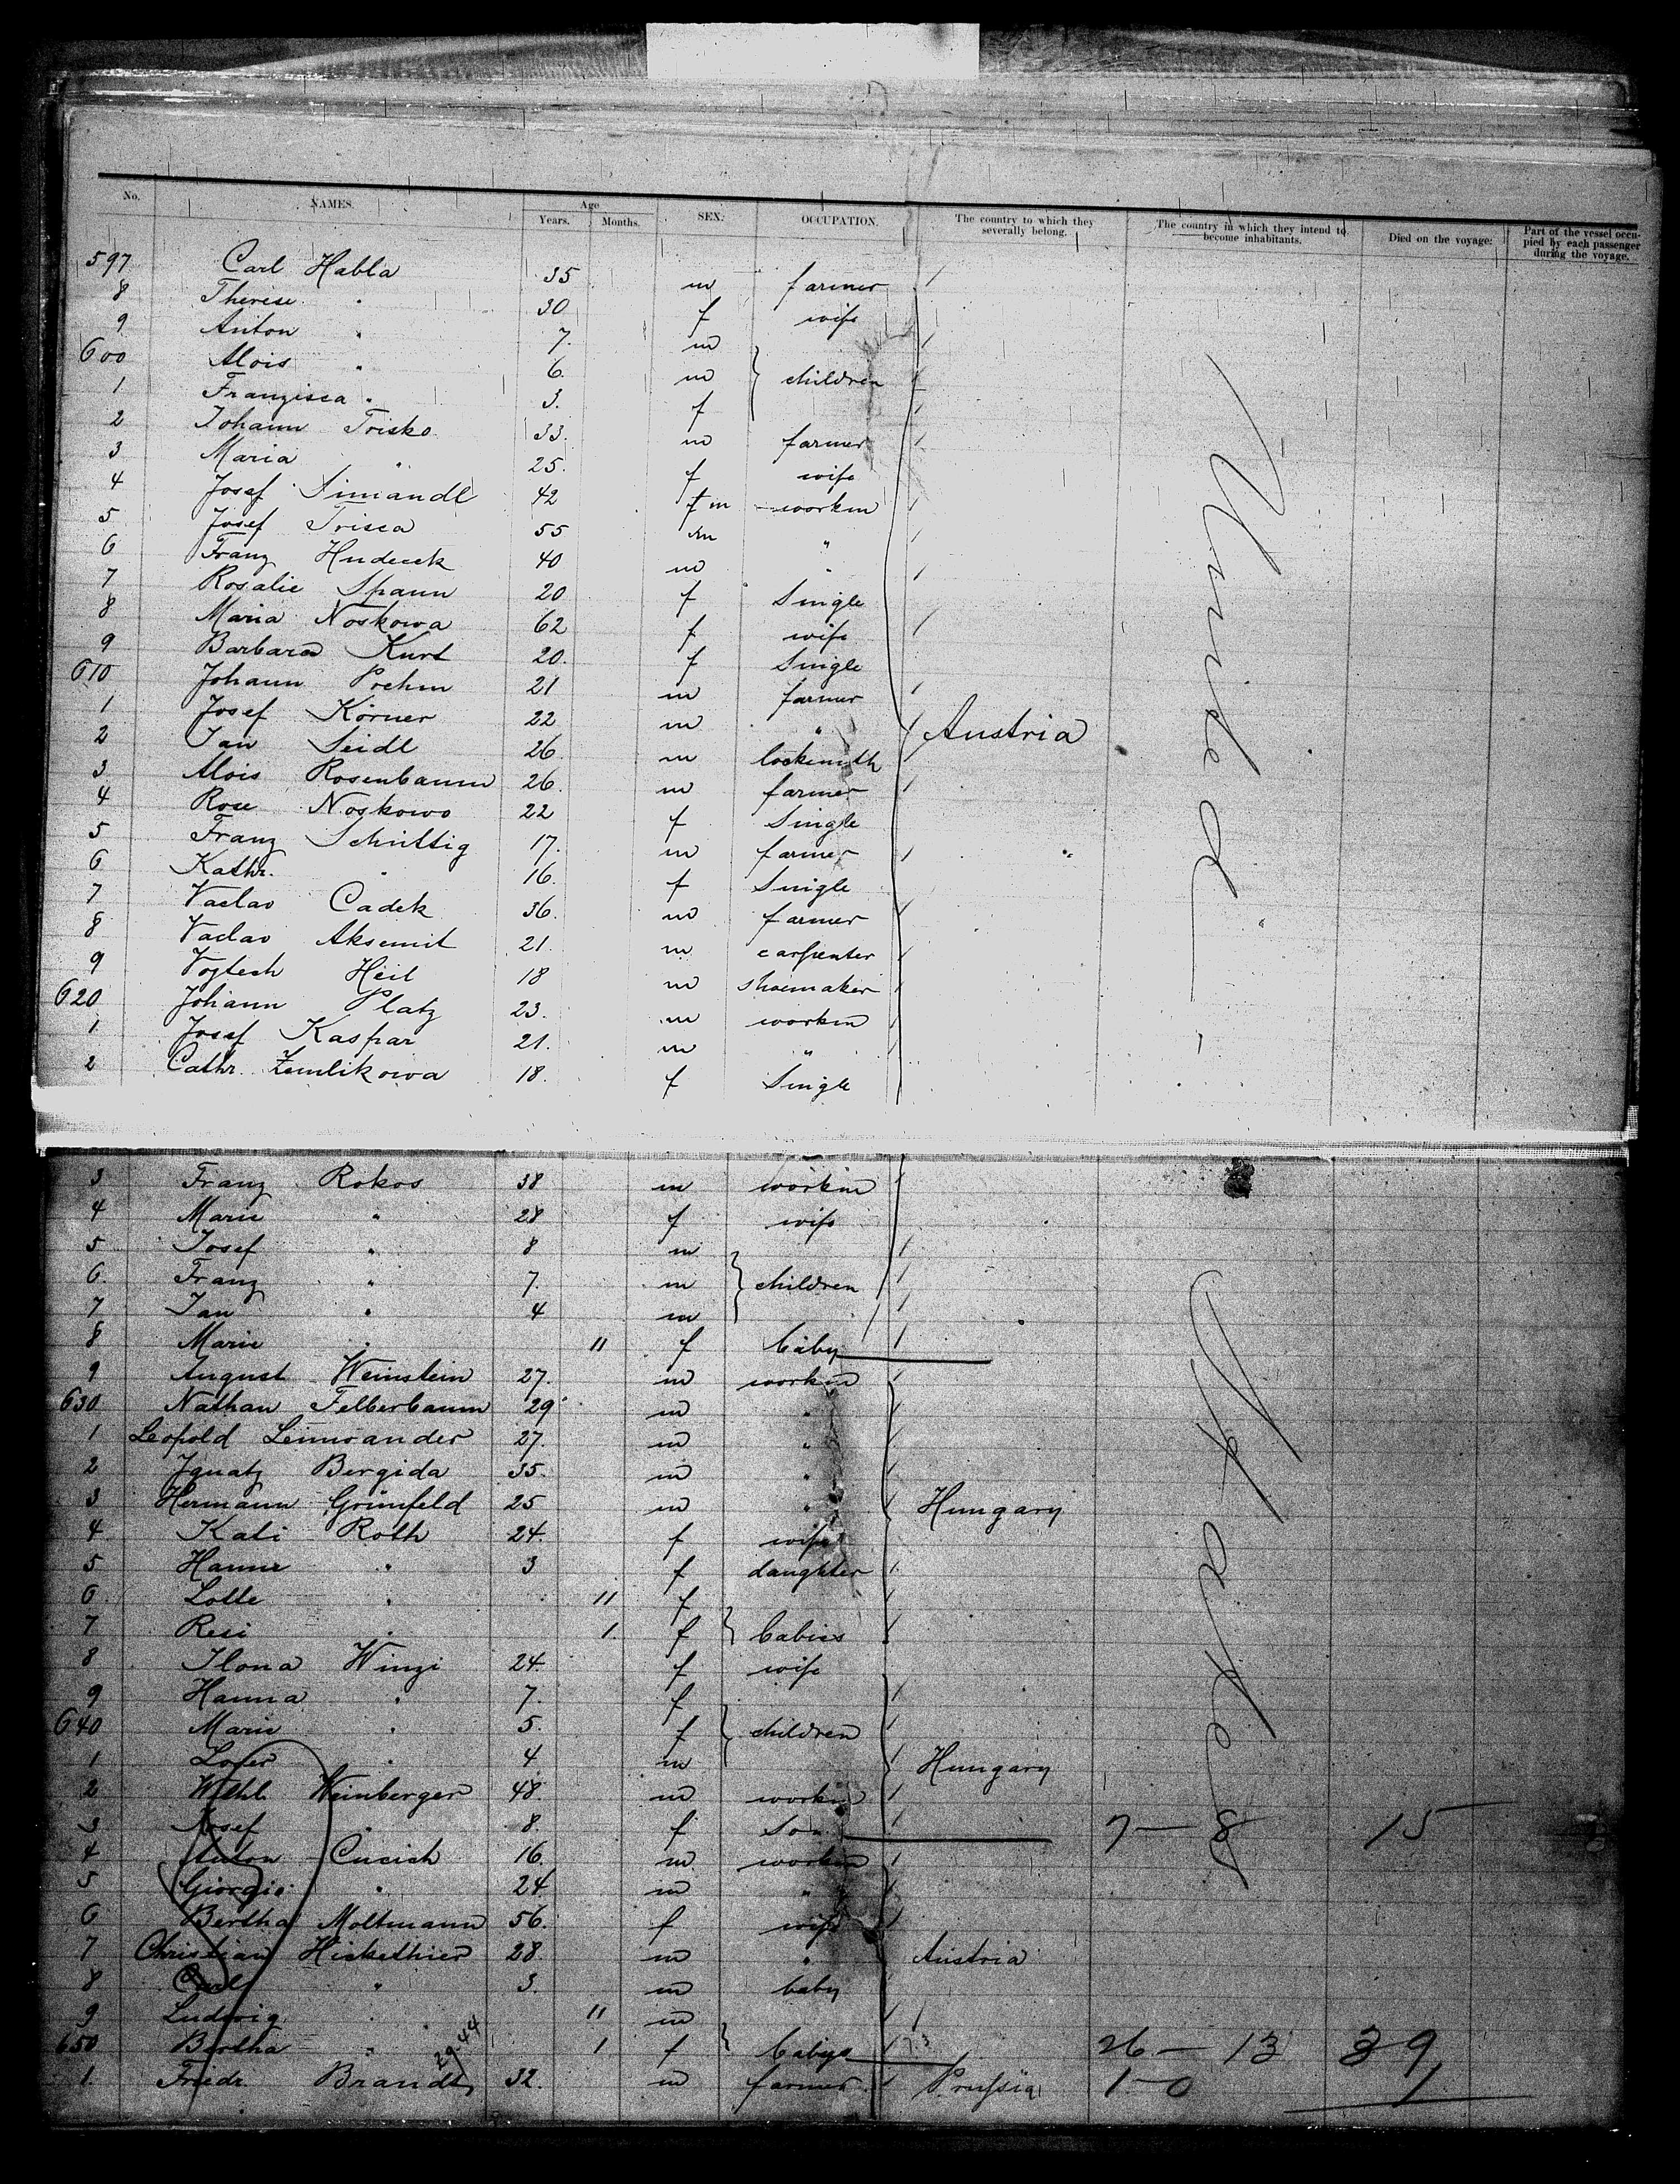 No. NAMES. Age Years. Months. SEX. OCCUPATION. The country to which they severally belong. The country in which they intend to become inhabitants. Died on the voyage. Part of the vessel occupied by each passenger during the voyage.
597 Carl Habla 35 m farmer
8 Therese " 30 f wife
9 Anton " 7. m
600 Alois " 6. m children
1 Franzisca " 3. f
2 Johann Toisko 33. m farmer
3 Maria " 25. f wife
4 Josef Simandl 42 m workm
5 Josef Trisca 55 m "
6 Franz Hudecek 40 m "
7 Rosalie Spann 20 f Single
8 Maria Noskowa 62 f wife
9 Barbara Kurt 20. f Single
610 Johann Poehm 21 m farmer
1 Josef Körner 22 m " Austria
2 Jan Seidl 26 m locksmith
3 Alois Rosenbaum 26. m farmer
4 Rose Noskowo 22 f Single
5 Franz Schuttig 17. m farmer "
6 Kathr. " 16. f Single
7 Vaclav Cadek 36. m farmer
8 Vaclav Aksemit 21. m carpenter "
9 Vojtech Heil 18 m shoemaker
620 Johann Platz 23. m workm
1. Josef Kaspar 21. m "
2 Cathr. Zemlikowa 18. f Single
United
3 Franz Rokos 38 m workm
4 Marie " 28 f wife
5 Josef " 8 m
6. Franz " 7. m children
7 Jan " 4 m
8 Marie " 11 f baby
9 August Weinstein 27. m workm
630 Nathan Felberbaum 29 m "
1 Leopold 27. m "
2 Ignatz Bergida 35. m "
3 Hermann Grünfeld 25 m " Hungary
4 Kati Roth 24. f wife
5 Hanne " 3 f daughter
6. Lotte " 11 f
7 Resi " 1. f babies
8 Ilona Winzi 24. f wife
9 Hanna " 7. f
640 Marie " 5. f children
1 " 4 m Hungary
2 Wilhl. Weinberger 48. m workm
3 Josef " 8. f Son 7 — 8 15
4 Anton Cucich 16. m workm
5 Giorgio " 24 m "
6 Bertha Moltmann 56. f wife
7 Christian Hickethier 28 m " Austria
8 Carl " 3. m baby
9 Ludwig " 11 m
650 Bertha " 1 f babys 26 — 13 39
1. Friedr. Brandt 32. m farmer Prussia 1 — 0 1
States